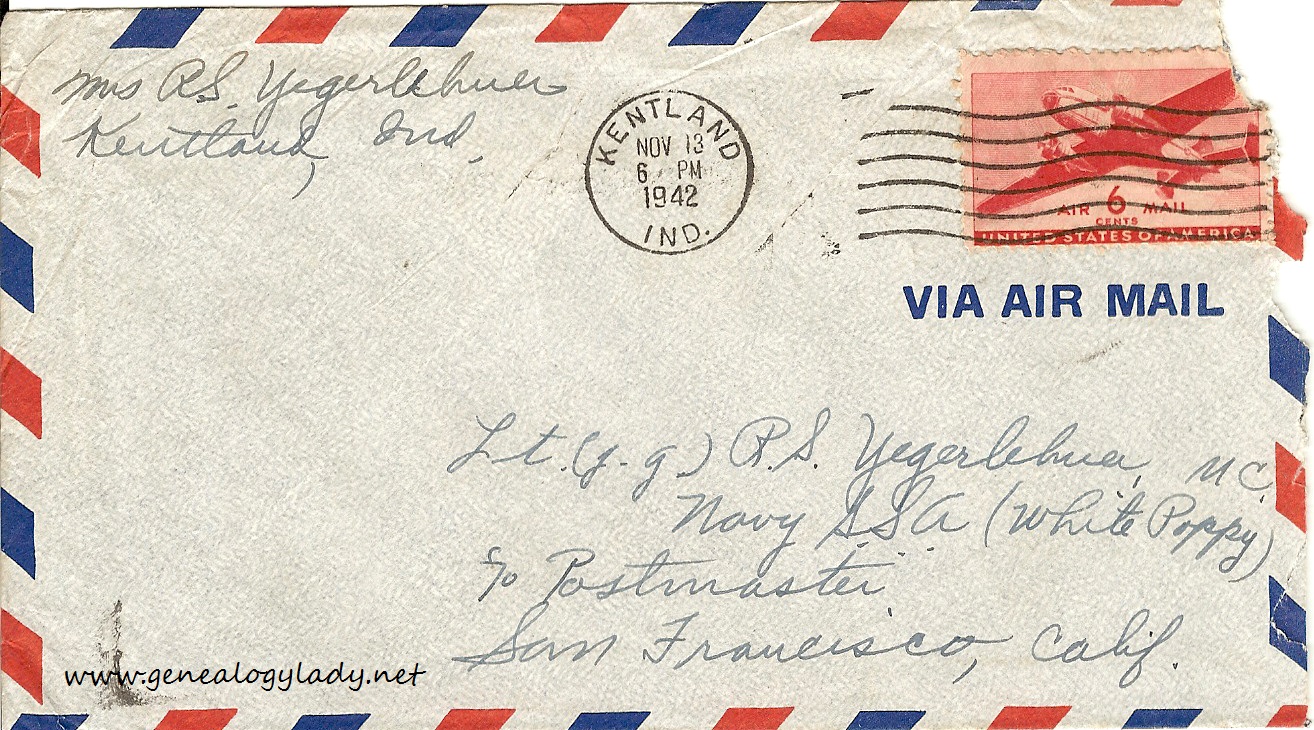 Mrs R.S. Yegerlehner
Kentland, Ind.
KENTLAND
NOV 13
6 PM
1942
IND.
AIR 6 MAIL
CENTS
UNITED STATES OF AMERICA
VIA AIR MAIL
Lt. (j.g.) R.S. Yegerlehner, M C.
Navy (White Poppy)
c/o Postmaster
San Francisco, Calif.
www.genealogylady.net